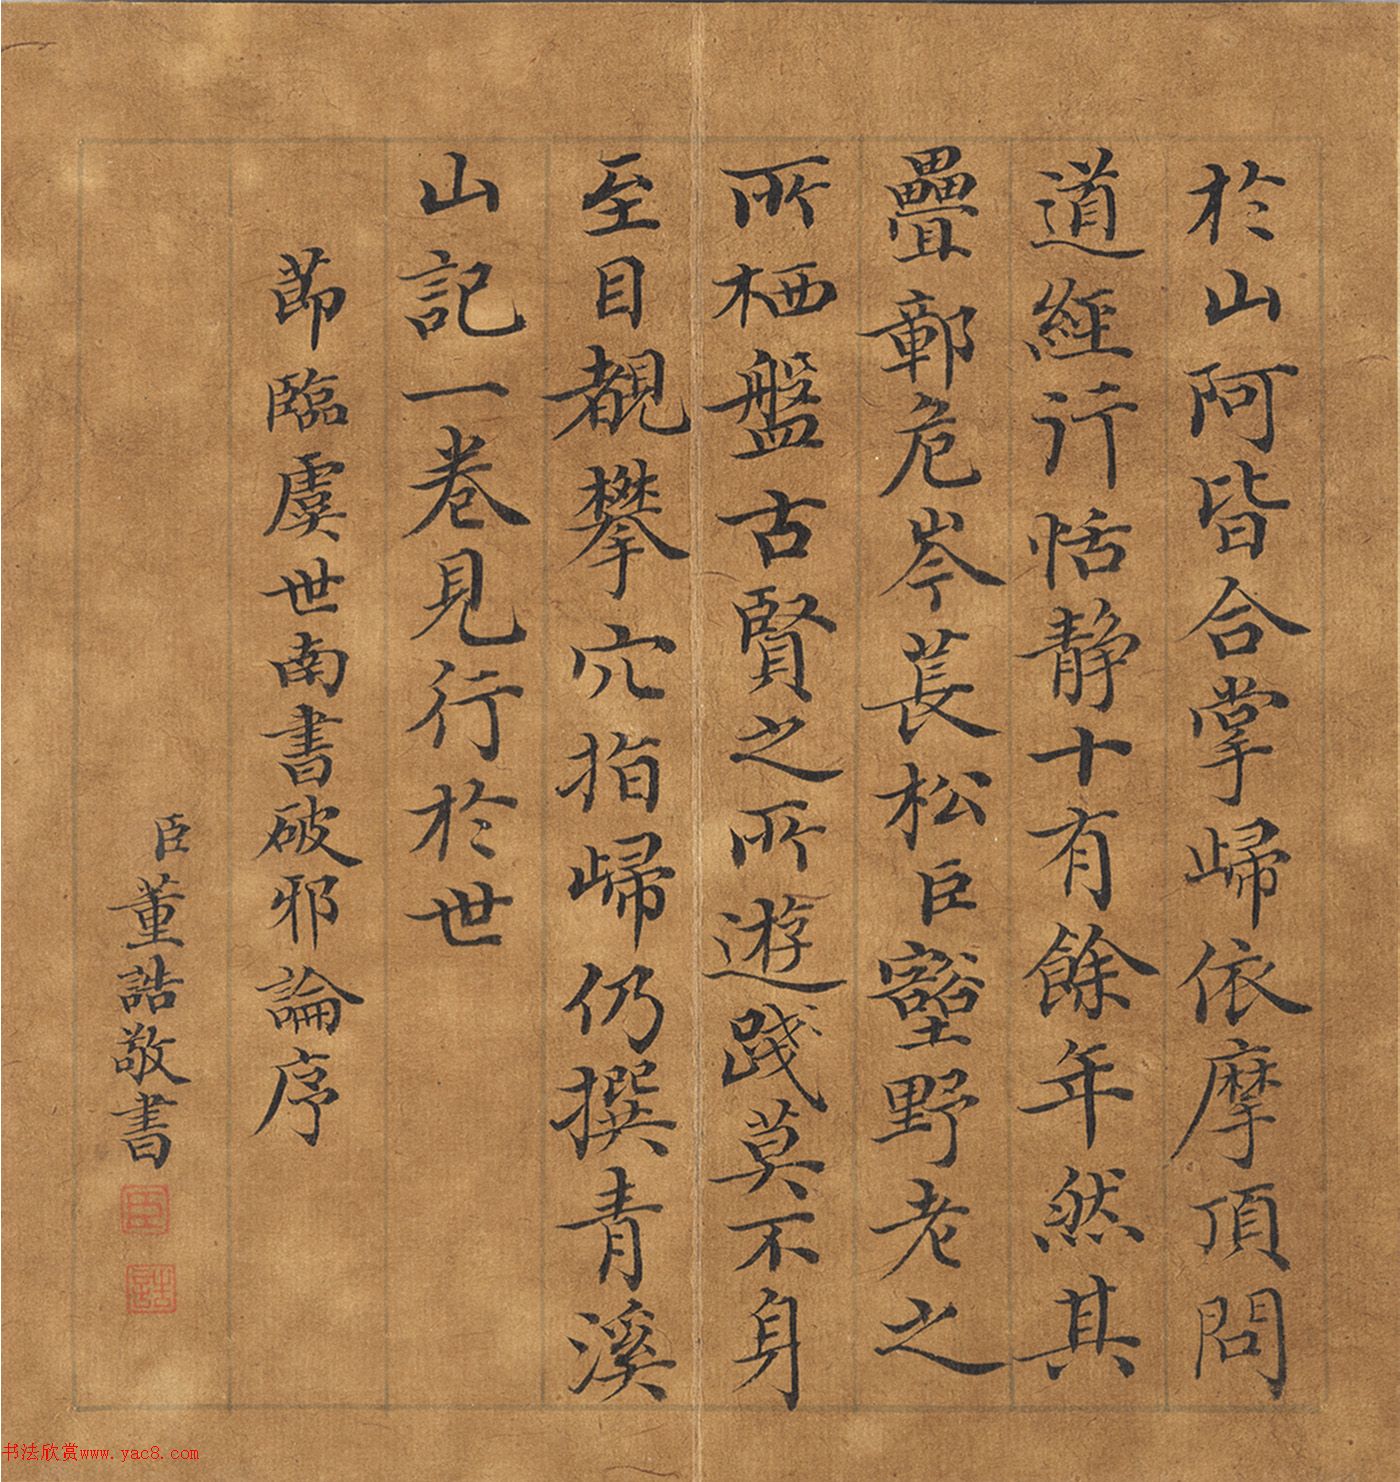 於山阿皆合掌歸依摩頂問
道經行恬靜十有餘年然其
疊鄣危岑萇松巨壑野老之
所栖盤古賢之所遊踐莫不身
至目覩攀穴指歸仍撰青溪
山記一卷見行於世
節臨虞世南書破邪論序
臣董誥敬書
臣
誥
书法欣赏www.yac8.com